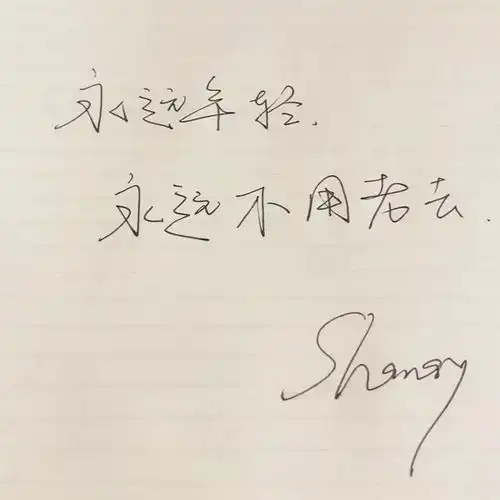 永远年轻.
永远不用老去.